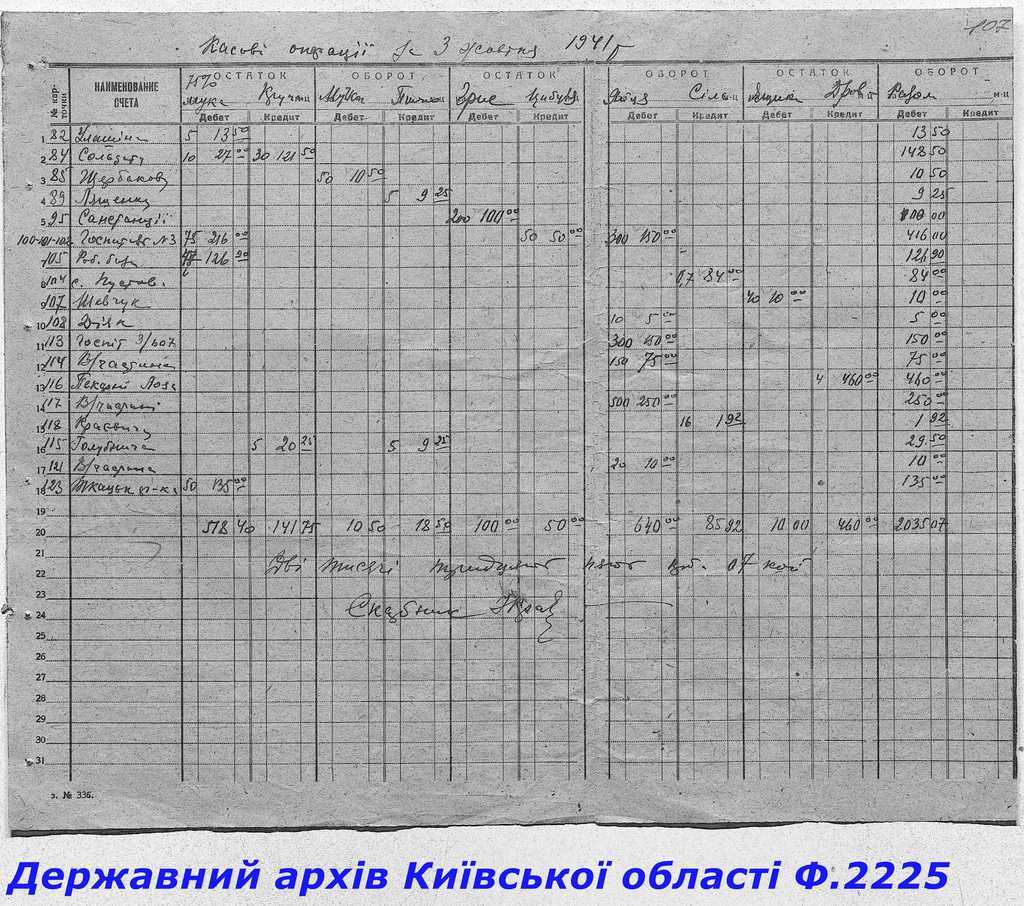 107
Касові операції за 3 жовтня 1941 г
№ кар-точки НАИМЕНОВАНИЕ СЧЕТА ОСТАТОК ОБОРОТ ОСТАТОК ОБОРОТ ОСТАТОК ОБОРОТ
75% мука Пшено Цибуля Яблук Сіль Дров Разом
Дебет Кредит Дебет Кредит Дебет Кредит Дебет Кредит Дебет Кредит Дебет Кредит
1 82 5 13 50 13 50
2 84 10 27 00 30 121 50 148 50
3 85 Щербакову 50 10 50 10 50
4 89 Ляшенко 5 9 25 9 25
5 95 Санстанції 200 100 00 100 00
100-101-102 Госпиталь №3 75 216 00 50 50 00 300 150 00 416 00
105 Роб. 126 90 126 90
104 с. Пустов. 0,7 84 00 84 00
107 Шевчук 40 10 00 10 00
10 108 Дізік 10 5 00 5 00
11 113 Госпіт 300 150 00 150 00
12 114 В/частина 150 75 00 75 00
13 116 Пекарні Лоза 4 460 00 460 00
14 117 В/частині 500 250 00 250 00
15 118 16 1 92 1 92
16 115 Голубнича 5 20 25 5 9 25 29 50
17 121 В/частина 20 10 00 10 00
18 123 Ткацьк ф-ка 50 135 00 135 00
19
20 518 40 141 75 10 50 18 50 100 00 50 00 640 00 85 92 10 00 460 00 2035 07
21 Дві тисячі тридцять пять крб. 07 коп
22
23 Скарбник
24
25
26
27
28
29
30
31
з. № 336.
Державний архів Київської області Ф.2225